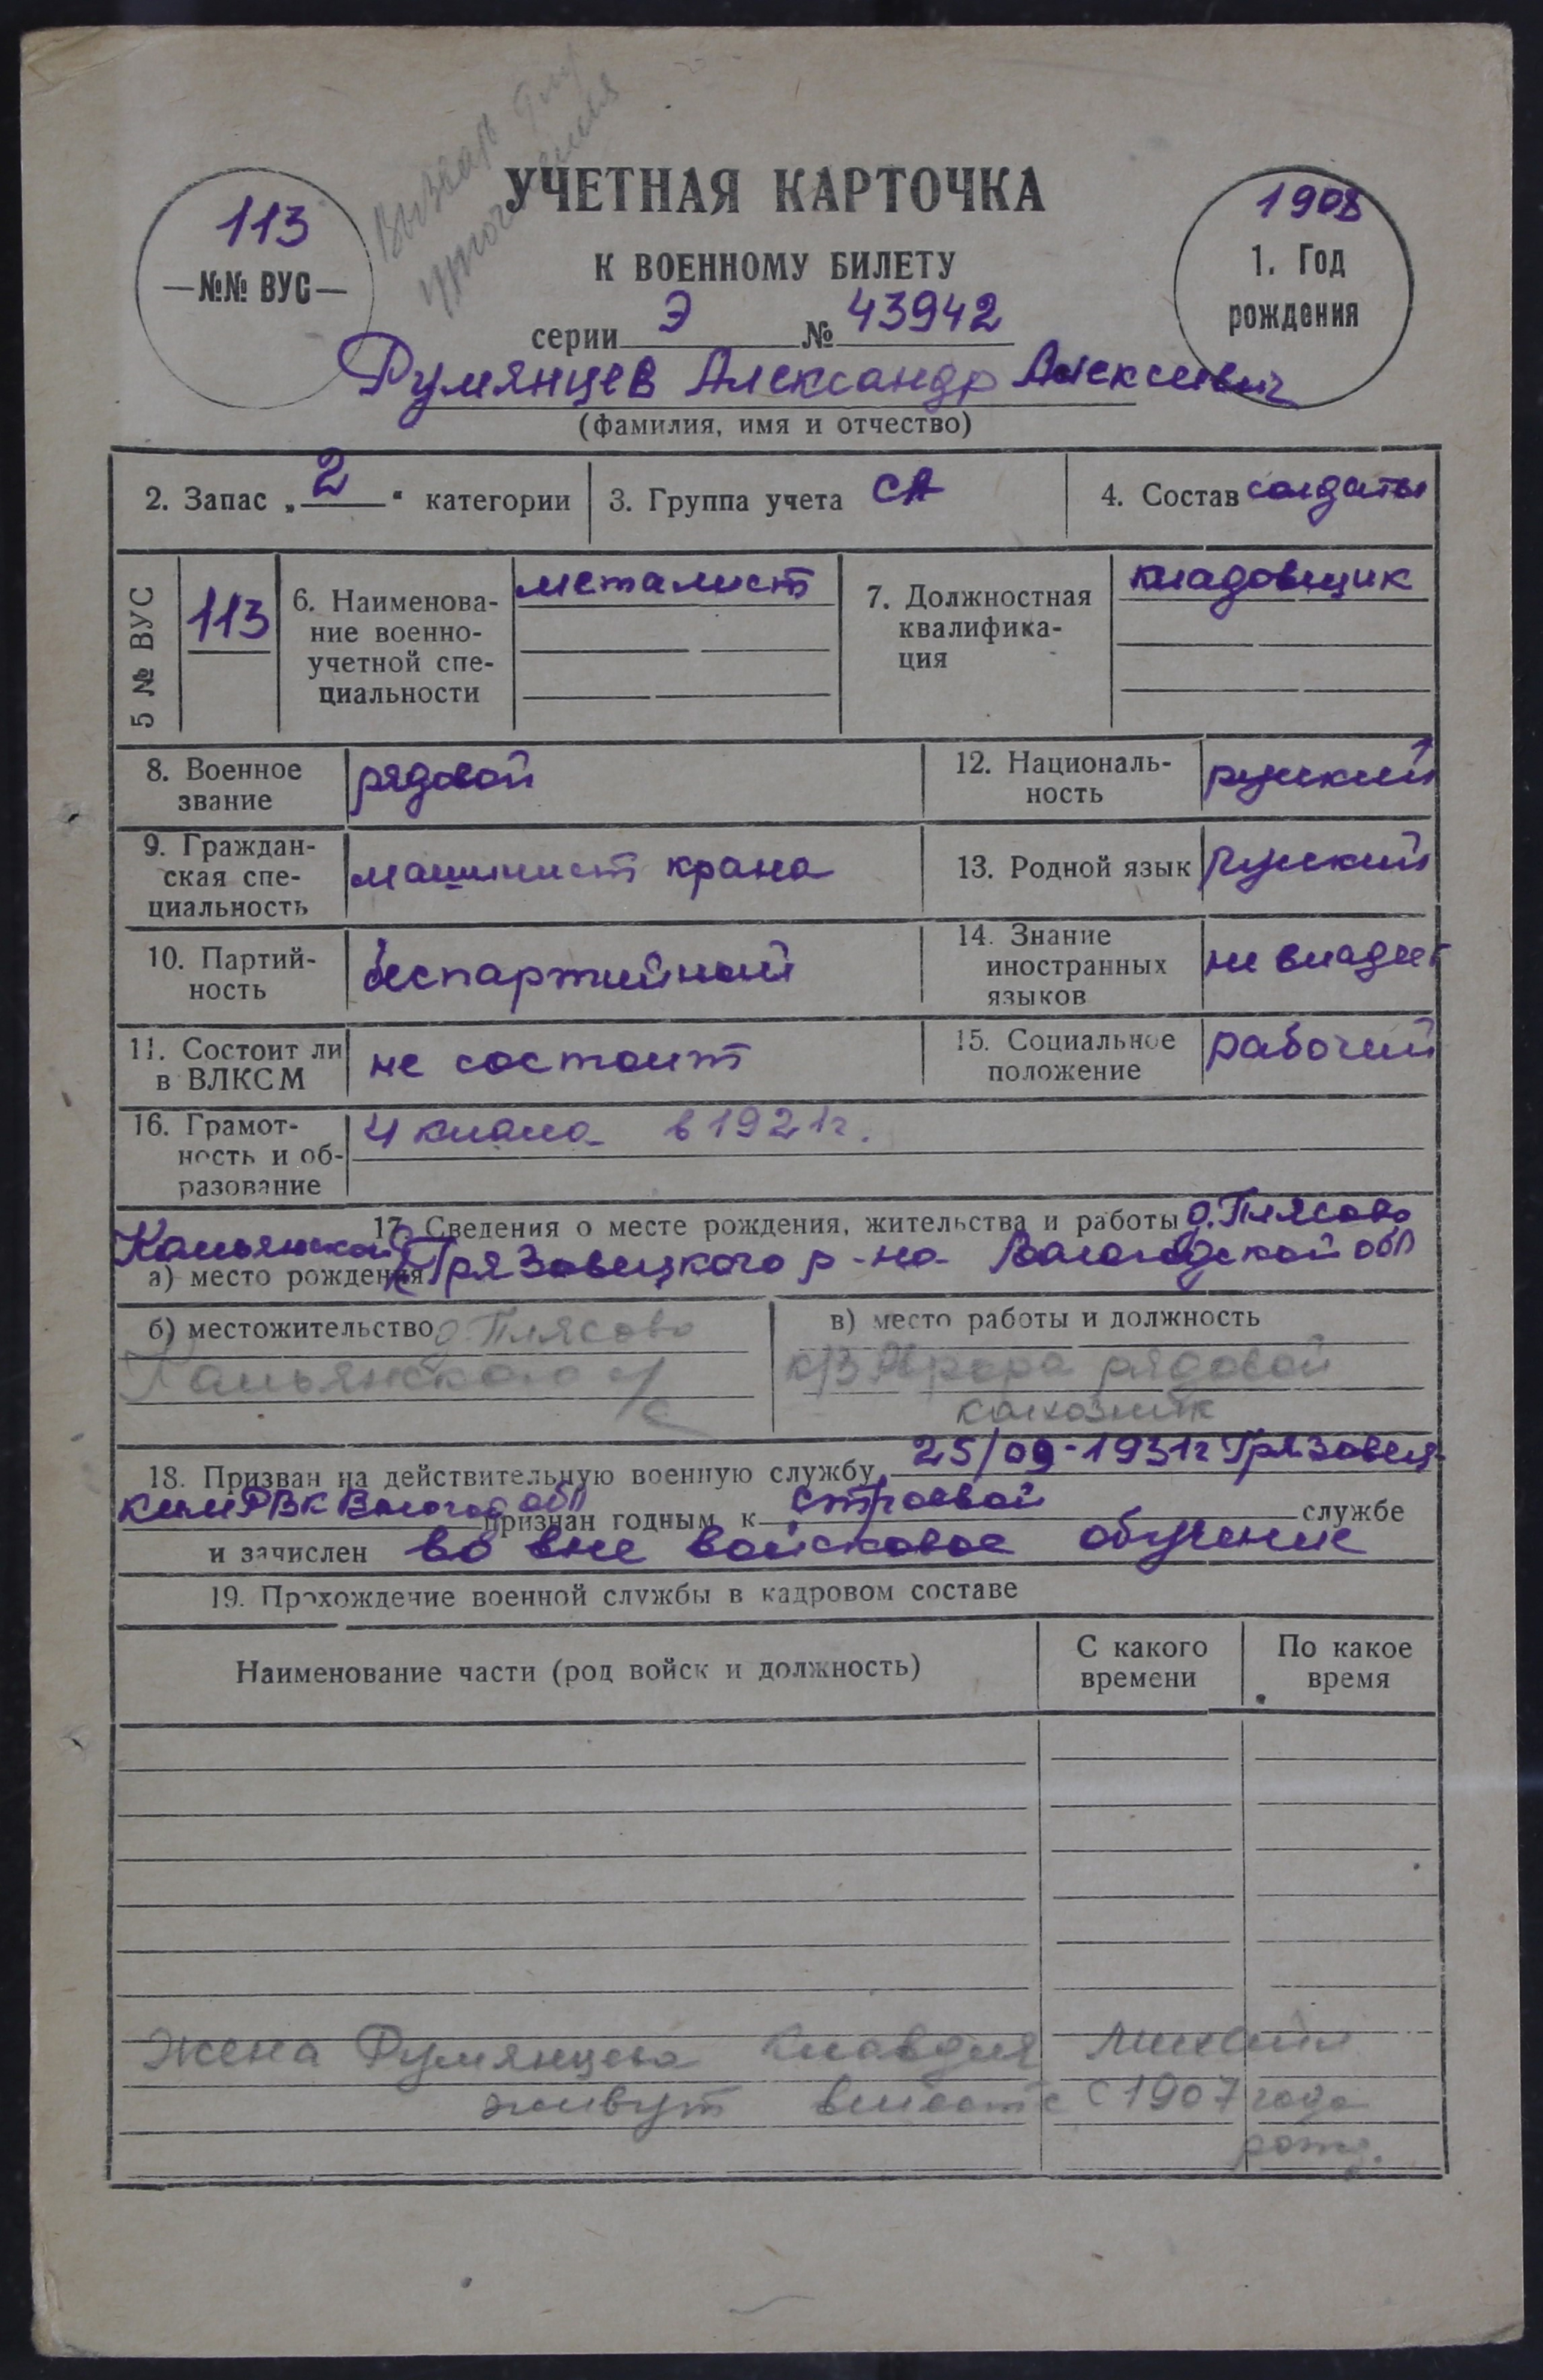 Вызван для
уточнения
УЧЕТНАЯ КАРТОЧКА
К ВОЕННОМУ БИЛЕТУ
113
—№№ ВУС—
1908
1. Год
рождения
серии Э № 43942
Румянцев Александр Алексеевич
(фамилия, имя и отчество)
2. Запас „ 2 “ категории
3. Группа учета СА
4. Состав солдаты
5 № ВУС
113
6. Наименова-
ние военно-
учетной спе-
циальности
металист
7. Должностная
квалифика-
ция
кладовщик
8. Военное
звание
рядовой
12. Националь-
ность
русский
9. Граждан-
ская спе-
циальность
машинист крана
13. Родной язык русский
10. Партий-
ность
беспартийный
14. Знание
иностранных
языков
не владеет
11. Состоит ли
в ВЛКСМ
не состоит
15. Социальное
положение
рабочий
16. Грамот-
ность и об-
разование
4 класса в 1921г.
17. Сведения о месте рождения, жительства и работы д. Плясово
а) место рождения Грязовецкого р-на Вологодской обл
б) местожительство д. Плясово
в) место работы и должность
к/з Аврора рядовой
колхозник
18. Призван на действительную военную службу 25/09-1931г Грязовец-
ким РВК Вологод обл признан годным к строевой службе
и зачислен во вне войсковое обучение
19. Прохождение военной службы в кадровом составе
Наименование части (род войск и должность)
С какого
времени
По какое
время
Жена Румянцева Клавдия Михайл
живут вместе с 1907 года
рожд.